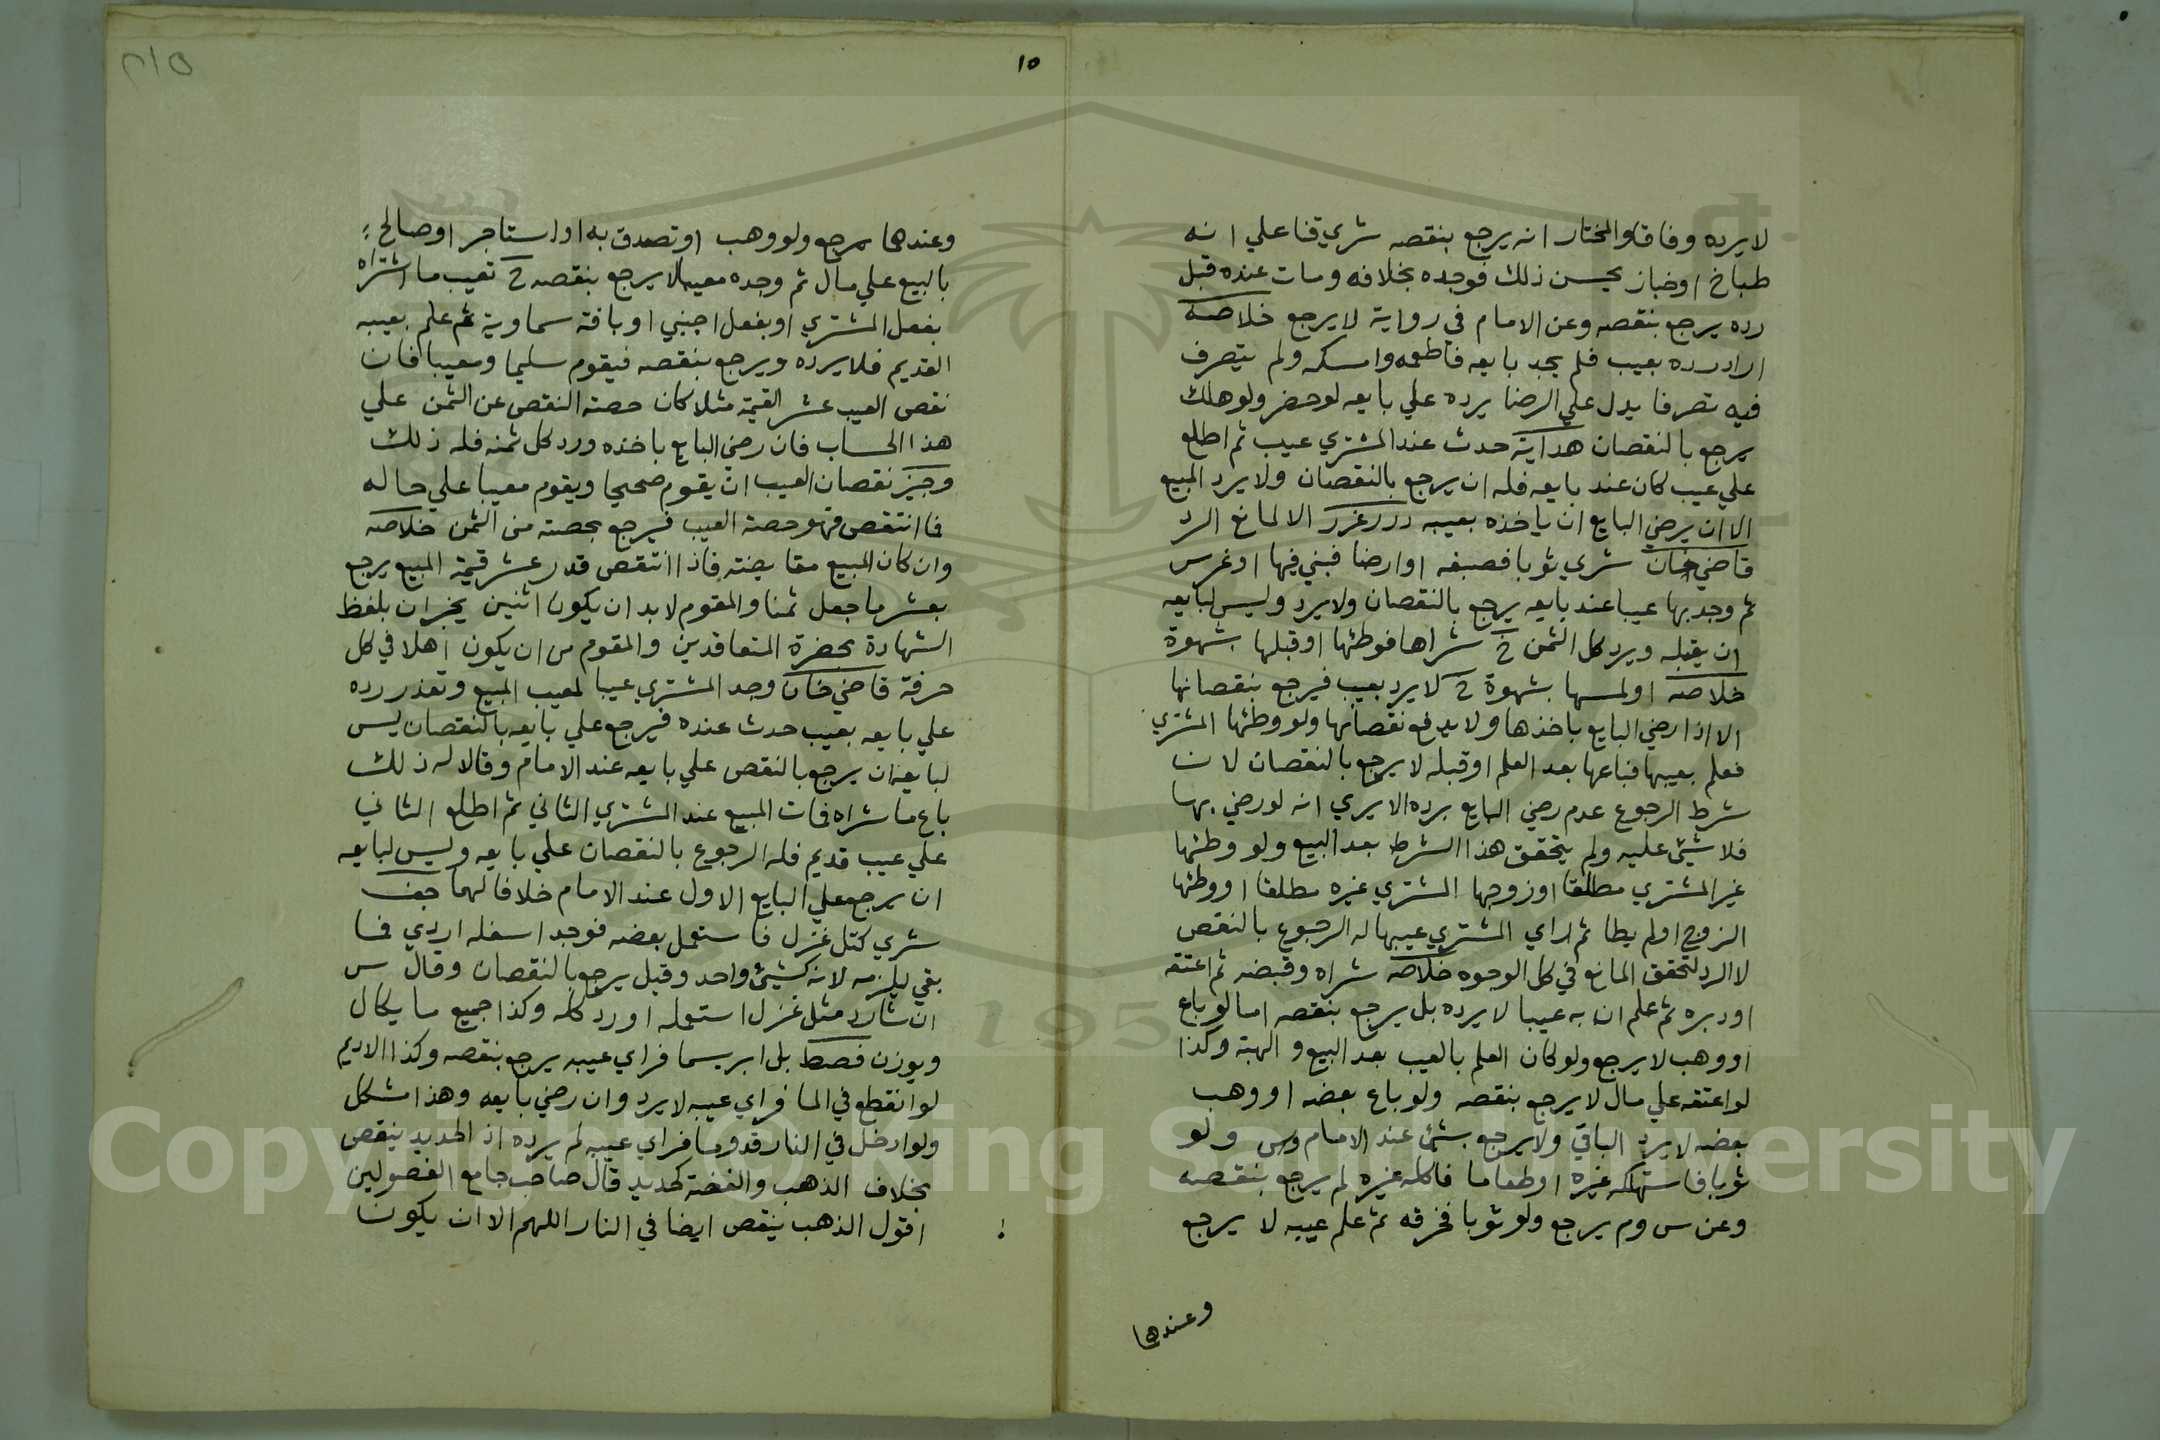 لا يرده وفاقا والمختار انه يرجع بنقصه شري قنا علي انه
طباخ او خباز يحسن ذلك فوجده بخلافه ومات عنده قبل
رده يرجع بنقصه وعن الامام في رواية لا يرجع خلاصه
اراد رده بعيب فلم يجد بايعه فاطعمه وامسكه ولم يتصرف
فيه تصرفا يدل علي الرضا يرده علي بايعه لو حضر ولو هلك
يرجع بالنقصان هداية حدث عند المشتري عيب ثم اطلع
علي عيب كان عند بايعه فله ان يرجع بالنقصان ولا يرد المبيع
الا ان يرضي البايع ان ياخذه بعيبه درر غرر الا لمانع الرد
قاضي خان شري ثوبا فصبغه او ارضا فبني فيها او غرس
ثم وجد بها عيبا عند بايعه يرجع بالنقصان ولا يرد وليس لبايعه
ان يقبله ويرد كل الثمن خ شراها فوطئها او قبلها بشهوة
خلاصه او لمسها بشهوة ح لا يرد بعيب فيرجع بنقصانها
الا اذا رضي البايع باخذها ولا يدفع نقصانها ولو وطئها المشتري
فعلم بعيبها فباعها بعد العلم او قبله لا يرجع بالنقصان لان
شرط الرجوع عدم رضي البايع برده الا يري انه لو رضي بها
فلا شئ عليه ولم يتحقق هذا الشرط بعد البيع ولو وطئها
غير المشتري مطلقا او زوجها المشتري غيره مطلقا او وطئها
الزوج او لم يطا ثم راي المشتري عيبها له الرجوع بالنقص
لا الرد لتحقق المانع في كل الوجوه خلاصه شراه وقبضه ثم اعتقه
او دبره ثم علم ان به عيبا لا يرده بل يرجع بنقصه اما لو باع
او وهب لا يرجع ولو كان العلم بالعيب بعد البيع والهبة وكذا
لو اعتقه علي مال لا يرجع بنقصه ولو باع بعضه او وهب
بعضه لا يرد الباقي ولا يرجع بشئ عند الامام وس ولو
ثوبا فاستهلكه غيره او طعاما فاكله غيره لم يرجع بنقصه
وعن س وم يرجع ولو ثوبا فخرقه ثم علم عيبه لا يرجع
وعندهما
١٥
وعندهما يرجع ولو وهب او تصدق به او استاجر او صالح
بالبيع علي مال ثم وجده معيبا لا يرجع بنقصه ح تعيب ما اشتراه
بفعل المشتري او بفعل اجنبي او بافة سماوية ثم علم بعيبه
القديم فلا يرده ويرجع بنقصه فيقوم سليما ومعيبا فان
نقص العيب عشر القيمة مثلا كان حصة النقص عن الثمن علي
هذا الحساب فان رضي البايع باخذه ورد كل ثمنه فله ذلك
وجيز نقصان العيب ان يقوم صحيحا ويقوم معيبا علي حاله
فما انتقص فهو حصة العيب فيرجع بحصته من الثمن خلاصه
وان كان المبيع مقايضة فاذا انتقص قدر عشر قيمة المبيع يرجع
بعشر ما جعل ثمنا والمقوم لا بد ان يكون اثنين يخبران بلفظ
الشهادة بحضرة المتعاقدين والمقوم من ان يكون اهلا في كل
حرفة قاضي خان وجد المشتري عيبا لمعيب المبيع وتعذر رده
علي بايعه بعيب حدث عنده فيرجع علي بايعه بالنقصان ليس
لبايعه ان يرجع بالنقص علي بايعه عند الامام وقالا له ذلك
باع ما شراه فمات المبيع عند المشتري الثاني ثم اطلع الثاني
علي عيب قديم فله الرجوع بالنقصان علي بايعه وليس لبايعه
ان يرجع علي البايع الاول عند الامام خلافا لهما جف
شري كتل غزل فاستعمل بعضه فوجد اسفله اردي فما
بقي يلزمه لانه كشئ واحد وقيل يرجع بالنقصان وقال س
ان شا رد مثل غزل استعمله او رد كله وكذا جميع ما يكال
ويوزن فصط بل ابريسما فراي عيبه يرجع بنقصه وكذا الاديم
لو انقطع في الما فراي عيبه لا يرد وان رضي بايعه وهذا مشكل
ولو ادخل في النار قدوما فراي عيبه لم يرده اذ الحديد ينقص
بخلاف الذهب والفضة كحديد قال صاحب جامع الفصولين
اقول الذهب ينقص ايضا في النار اللهم الا ان يكون
Copyright © King Saud University
195